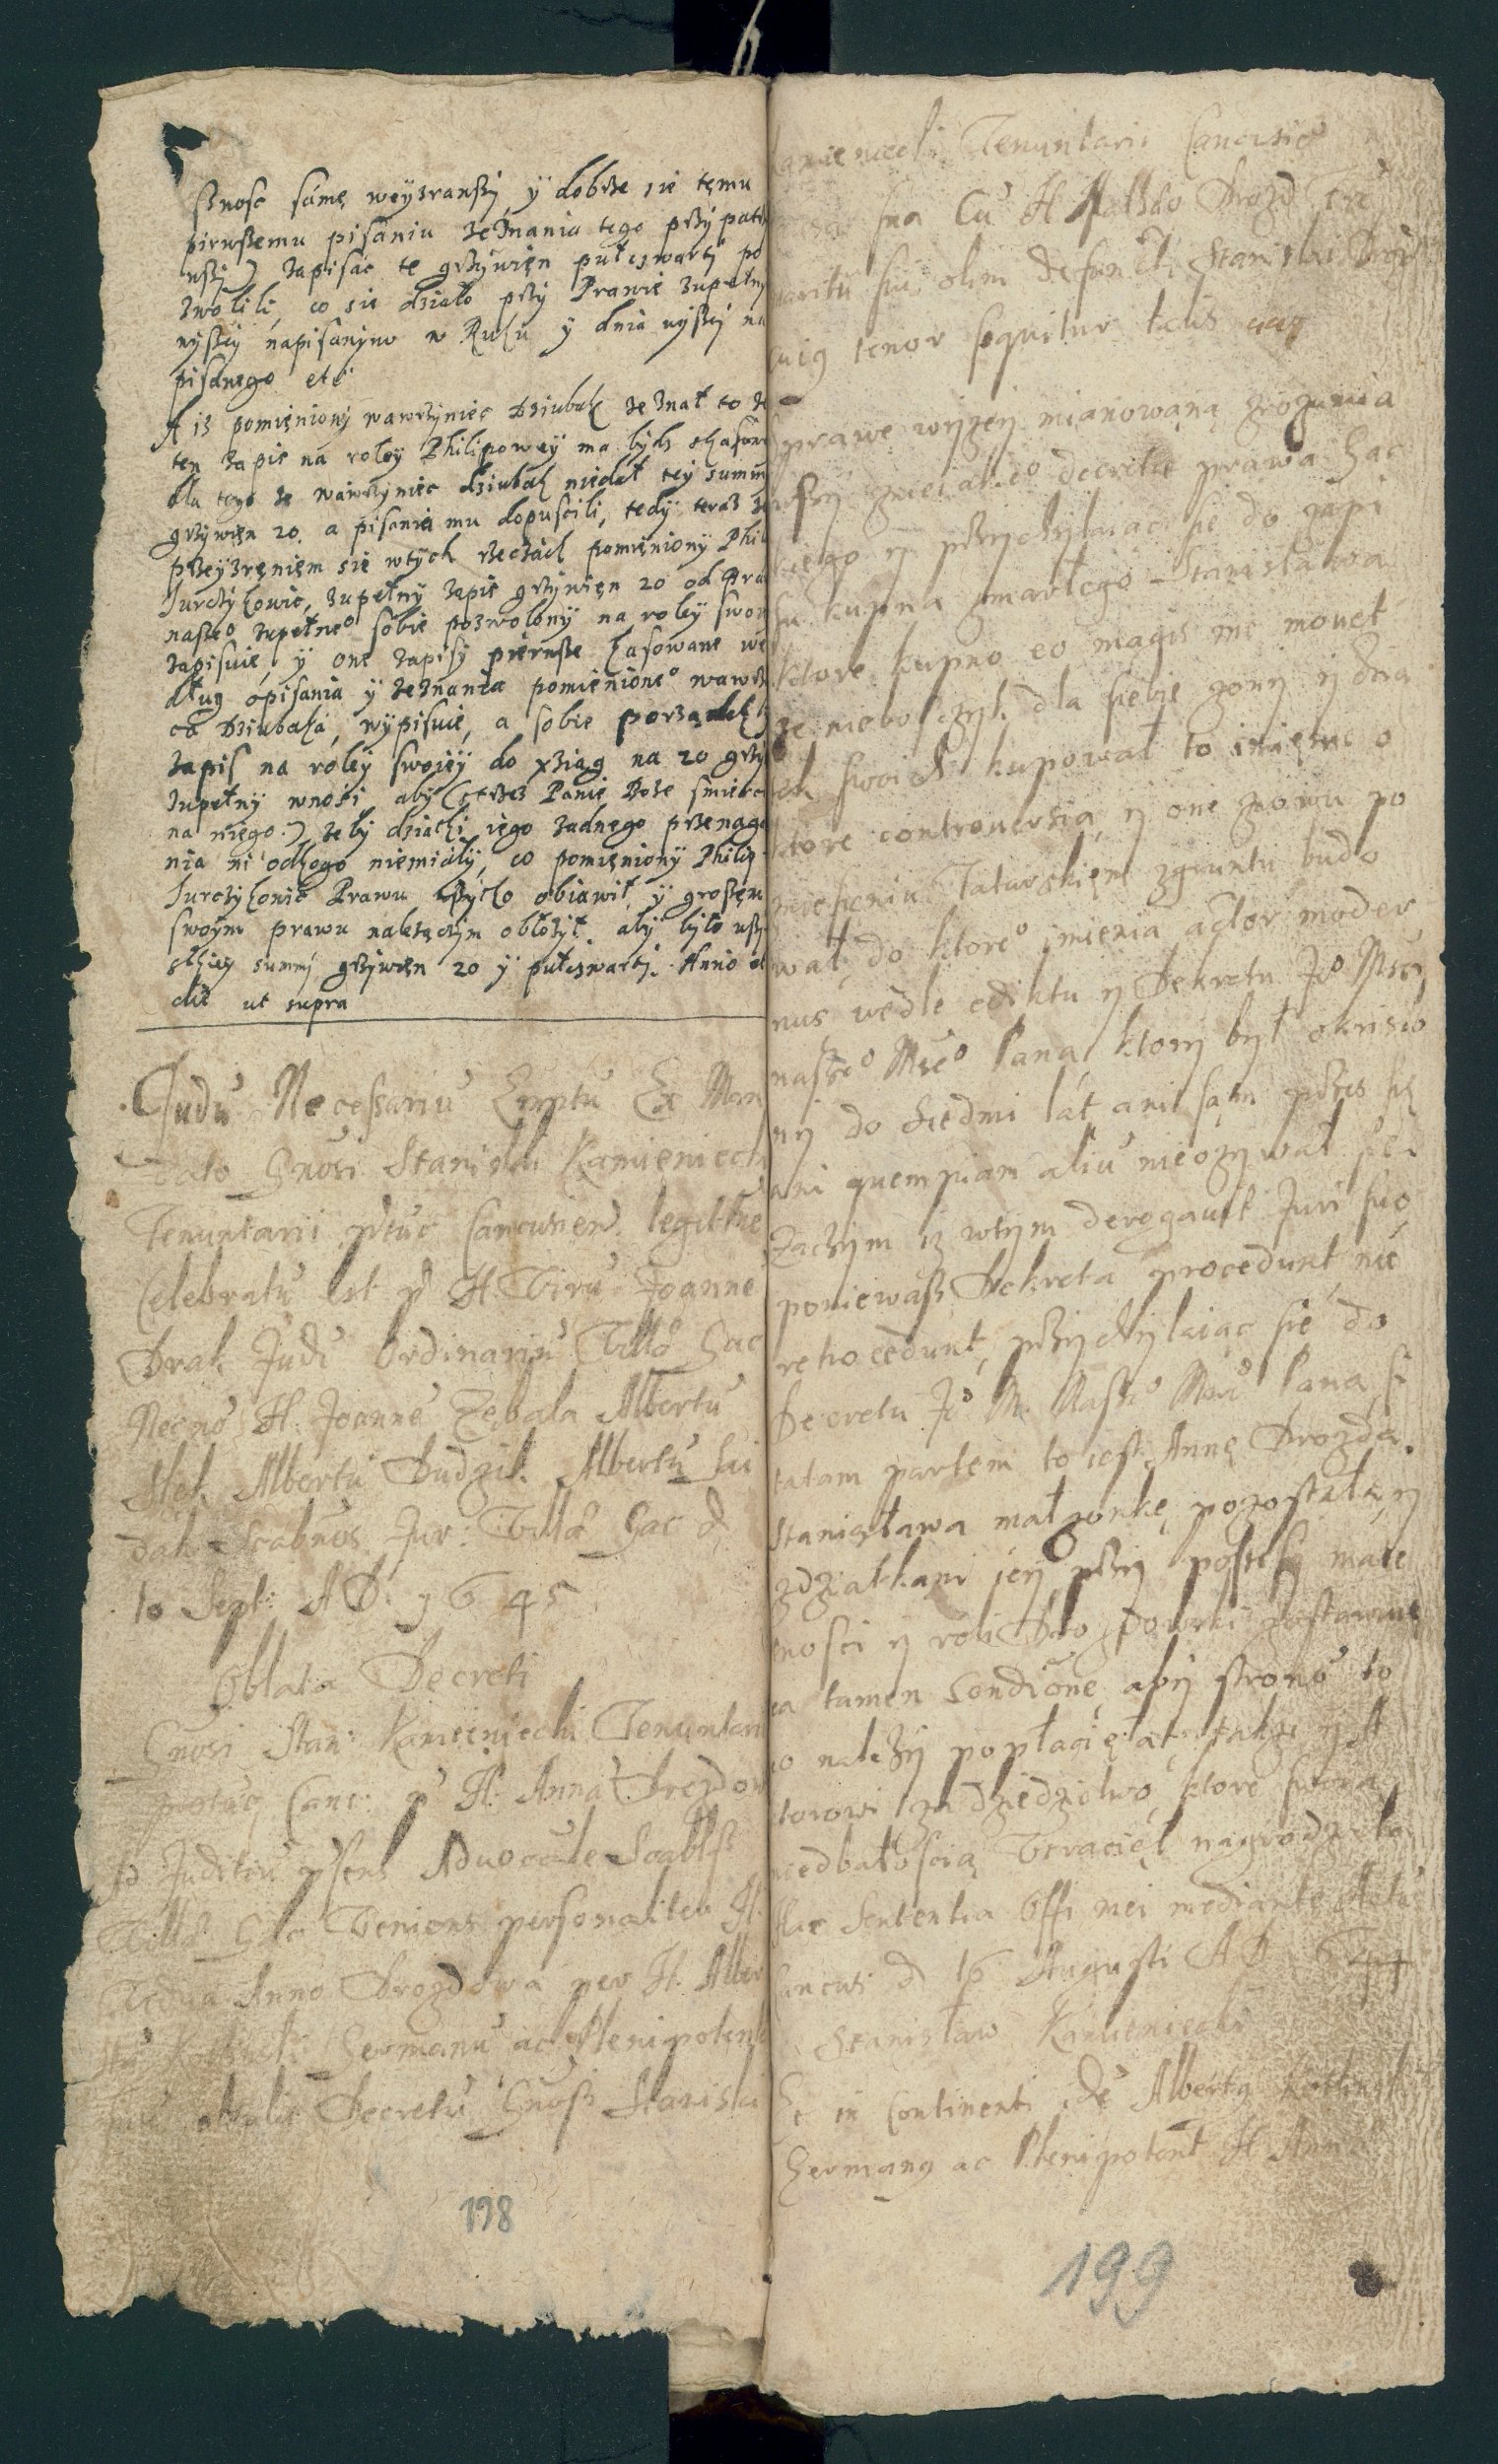 sznosc samę weyzranszy, y dobrze sie temu
pirwszemu pisaniu zeznania tego przypatr
wszy) zapisac te grzywien pułczwarty po
zwolili, co sie działo przy Prawie zupełny
wyszey napisanym w Ruku y dnia wyszey na
pisanego etc
A iz pomieniony wawrzyniec Dziubak zeznał to ze
ten zapis na roley Philipowey ma bydz skasowa
dla tego ze wawrzyniec dziubak niedał tey summy
grzywien 20. a pisania mu dopuscili, tedy teraz za
przeyzreniem sie wtych rzeczach pomieniony Phil
Jurczykowic, zupełny zapis grzywien 20 od Pra
naszeo zupełneo sobie pozwolony na roley swoie
zapisuie, y one zapisy pierwsze kasowane we
dług opisania y zeznania pomienioneo wawrz
ca Dziubaka, wypisuie, a sobie porządek y
zapis na roley swoiey do xziąg na 20 grzy
zupełny wnosi, aby (strzez Panie Boze smierc
na niego) ze by dziatki iego zadnego przenaga
nia ni odkogo niemiały, co pomieniony Philip
Jurczykowic Prawu wszytko obiawił, y groszem
swoym prawu nalezączym obłozył. aby było wszy
stkiey summy grzywien 20 y pułczwarty. Anno et
die ut supra
Judu Necessariu Emptu Ex Man
dato Gnosi Stanislai Kamieniecki
Tenuntarii ptuc Cancusien legittme
Celebratu est p H Viru Joanne
Drak Judi Ordinariu Villa Hac
Necno H. Joanne Zębala Albertu
Stek Albertu Dudzik Albertu Sai
dak Scabnos Jur: Villa Hac d
10 Sept: A D. 1645
Oblata Decreti
Gnosi Stan: Kamieniecki Tenuntari
Canc: p H. Anna Drozdow
Ad Juditiu psens Aduocale Scabls
Villa Hac Veniens personaliter H.
Anno Drozdowa per H. Alber
Germanu ac Plenipotent
Decretu Gnosi Stanislai
198
Kamieniecki Tenuntarii Cancusie
sna Cu H Drozd
maritu sui olim defuncti Stanislai Drozd
cuig tenor sequitur talis
Sprawe wyzey mianowaną zrozumia
wszy decretu prawa Hac
kiego y przychylaiac sie do zapi
su kupna zmarłego Stanisława
ktore kupno eo magis me mouet
ze nieboszczyk dla siebie zony y dzia
tek swoich kupował to imienie o
ktore controuersia y one znowu po
zniesieniu Tatarskiem zgruntu budo
wał, do ktoreo imienia actor moder
nus wedle edyktu y Dekretu Jo Msci
naszeo Msceo Pana ktory był okrisio
ny do Siedmi lat ani sam przes sie
ani quempiam aliu nieozywał sie
Zaczym iz wtym derogauit Juri suo
poniewasz Dekreta procedunt, nie
retrocedunt, przychylaiąc sie do
Decretu Jo M. Naszeo Msceo Pana, ci
tatam partem to iest Annę Drozda
Stanisława małzonkę pozostałą, y
zdziatkami jey przy possesy maie
tnosci y roli Drozdowski zostawuię
ea tamen Condićone, aby strono to
co nalezy popłacięła, takze y A
ktorowi za dziedzictwo, ktore swoią
niedbałoscią Vtracieł nagrodzeła
Hac Sententia Offi mei mediante
Cancusi d 16 Augusti A D 1644
Stanisław Kamieniecki
Et in Continenti Albertg
Germang ac Plenipotent H Anna
199